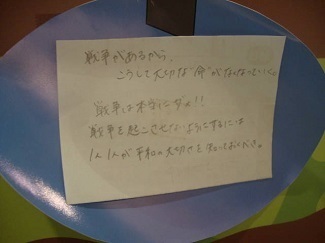 戦争があるから、
こうして大切な“命”がなくなっていく。
戦争は本当にダメ!!
戦争を起こさせないようにするには
1人1人が平和の大切さを知っておくべき。